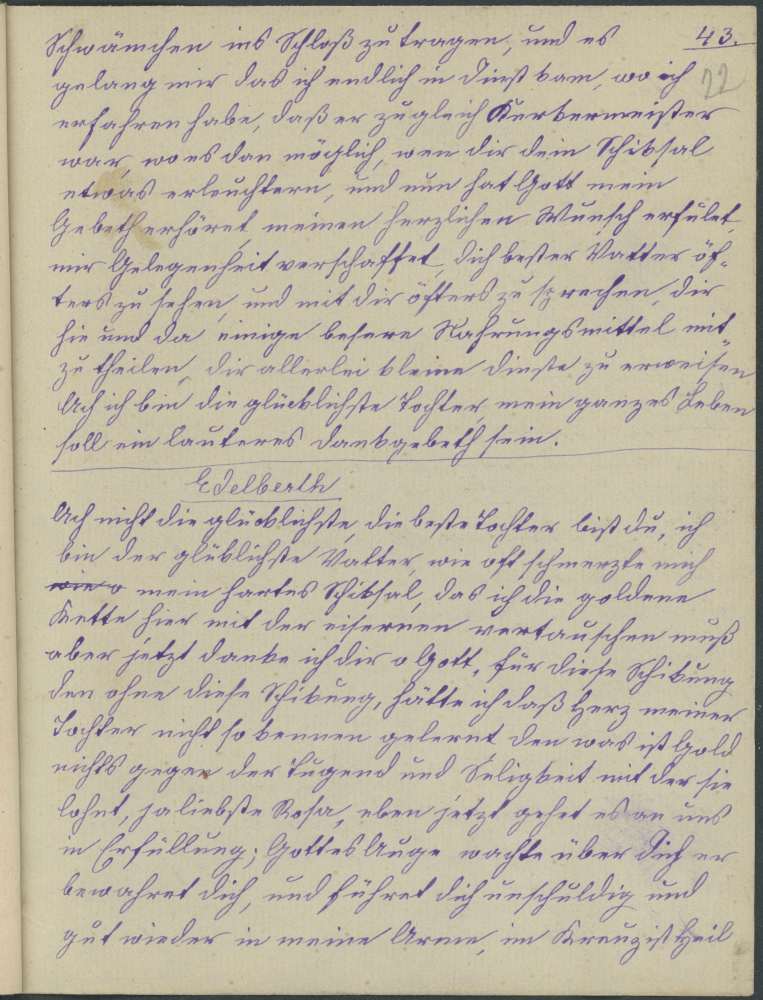 43.
22
Schwämchen ins Schloß zu tragen, und es
gelang mir das ich endlich in Dinst kam, wo ich
erfahren habe, daß er zugleich Kerkermeister
war, wo es dan möglich, wen dir dein Schiksal
etwas erleuchtern, und nun hat Gott mein
Gebeth erhöret, meinen herzlichen Wunsch erfület,
mir Gelegenheit verschaffet, dich bester Vatter öf-
ters zu sehen, und mit dir öfters zu sprechen, dir
hie und da einige besere Nahrungsmittel mit
zu theilen, dir allerlei kleine dinste zu erweisen
Ach ich bin die glücklichste Tochter mein ganzes Leben
soll ein lauteres dankgebeth sein.
Edelberth
Ach nicht die glücklichste, die beste Tochter bist du, ich
bin der glüklichste Vatter, wie oft schmerzte mich
wie o mein hartes Schiksal, das ich die goldene
Kette hier mit der eisernen vertauschen muß
aber jetzt danke ich dir o Gott, für diese Schikung
den ohne diese Schikung, hätte ich daß Herz meiner
Tochter nicht so kennen gelernt den was ist Gold
nichts gegen der Tugend und Seligkeit mit der sie
lohnt, ja liebste Rosa, eben jetzt gehet es an uns
in Erfüllung; Gottes Auge wachte über dich er
bewahret dich, und führet dich unschuldig und
gut wieder in meine Arme, im Kreuz ist Heil